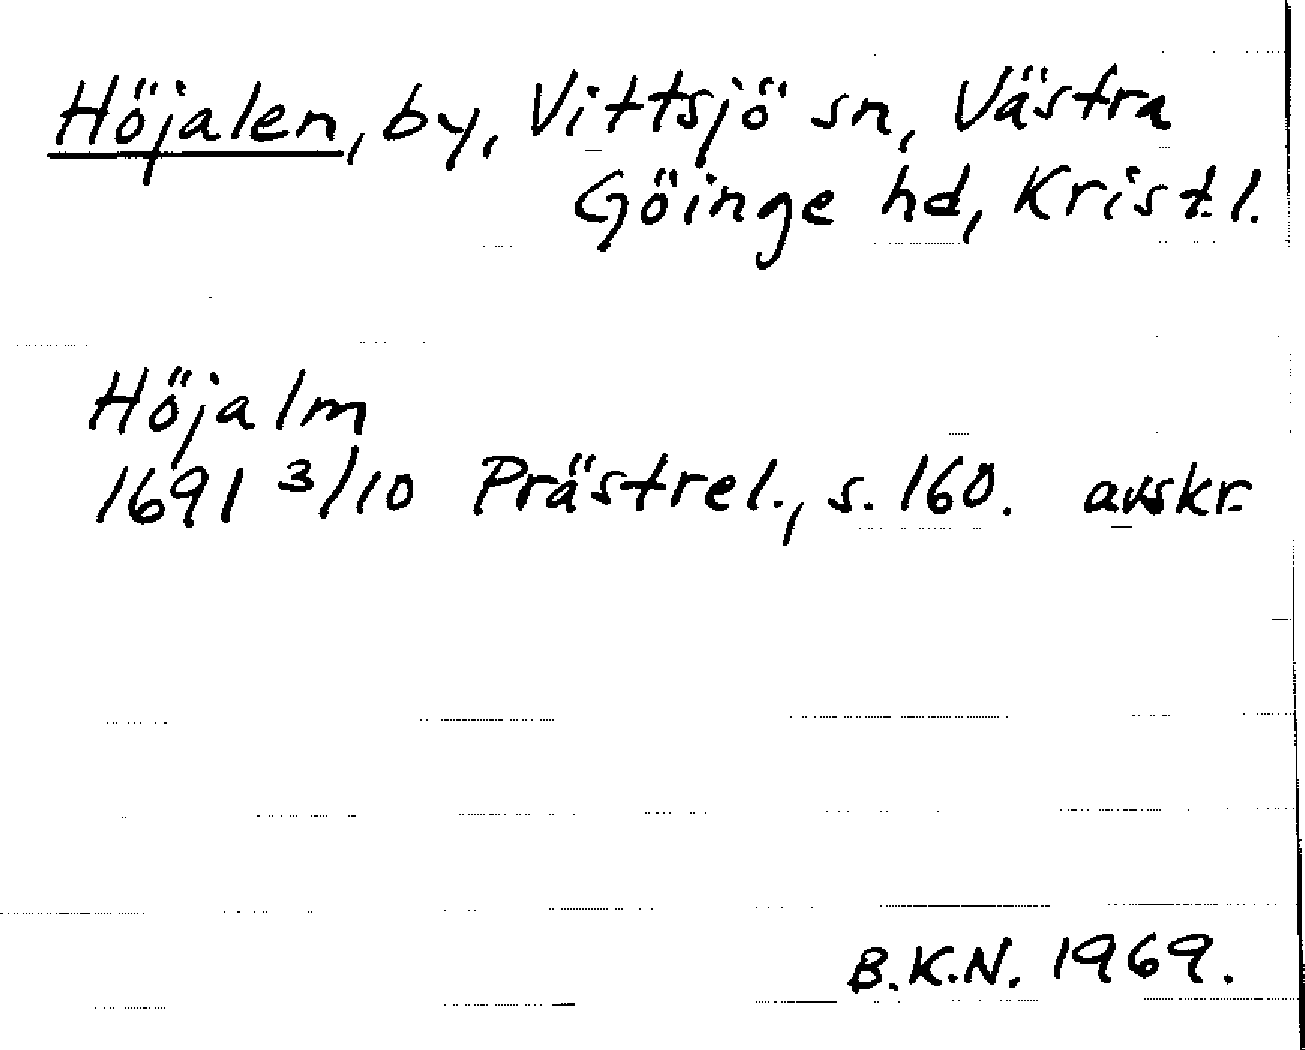 Höjalen, by, Vittsjö sn, Västra
Göinge hd, Krist.l.
Höjalm
1691 3/10 Prästrel., s. 160. avskr.
B.K.N. 1969.